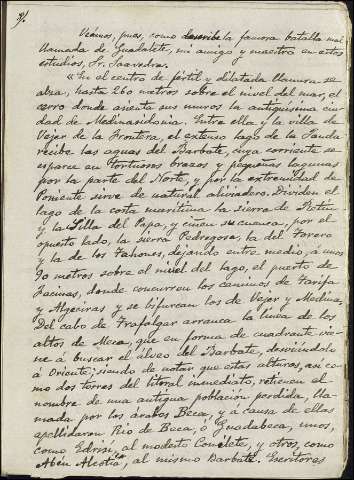 31.
Veámos, pues, como describe la famosa batalla mal
llamada de Guadalete, mi amigo y maestro en estos
estudios, Sr. Saavedra.
«En el centro de fértil y dilatada llanura se
alza, hasta 260 metros sobre el nivel del mar, el
cerro donde asienta sus muros la antiquísima ciu-
dad de Medinasidonia. Entre ella y la villa de
Vejer de la Frontera, el extenso lago de la Janda
recibe las aguas del Barbate, cuya corriente se
esparce en tortuosos brazos y pequeñas lagunas
por la parte del Norte, y por la extremidad de
Poniente sirve de natural aliviadero. Dividen el
lago de la costa marítima la sierra de Retin
y la Silla del Papa, y ciñen su cuenca, por el
opuesto lado, la sierra Pedregosa, la del Tarero
y la de los Tahones, dejando entre medio, á unos
90 metros sobre el nivel del lago, el puerto de
Facinas, donde concurren los caminos de Tarifa
y Algeciras y se bifurcan los de Vejer y Medina.
Del cabo de Trafalgar arranca la línea de los
altos de Meca, que en forma de cuadrante vie-
ne á buscar el álveo del Barbate, desviándolo
á Oriente; siendo de notar que estas alturas, así co-
mo dos torres del litoral inmediato, retienen el
nombre de una antigua población perdida, lla-
mada por los árabes Beca, y á causa de ellas
apellidaron Rio de Beca, ó Guadabeca, unos,
como Edrisí, al modesto Conilete, y otros, como
Abén Alcotía, al mismo Barbate. Escritores